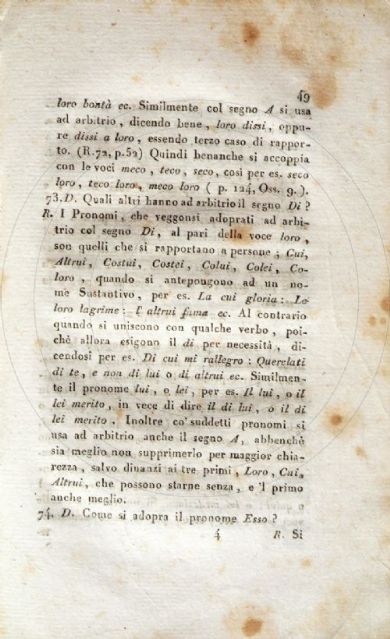 49
loro bontà ec. Similmente col segno A si usa
ad arbitrio, dicendo bene, loro dissi, oppu-
re dissi a loro, essendo terzo caso di rappor-
to. (R.72, p.52) Quindi benanche si accoppia
con le voci meco, teco, seco, così per es. seco
loro, teco loro, meco loro ( p. 124, Oss. 9. ).
73. D. Quali altri hanno ad arbitrio il segno Di?
R. I Pronomi, che veggonsi adoprati ad arbi-
trio col segno Di, al pari della voce loro,
son quelli che si rapportano a persone; Cui,
Altrui, Costui, Costei, Colui, Colei, Co-
loro, quando si antepongono ad un no-
me Sustantivo, per es. La cui gloria: Le
loro lagrime: L'altrui fama ec. Al contrario
quando si uniscono con qualche verbo, poi-
chè allora esigono il di per necessità, di-
cendosi per es. Di cui mi rallegro: Querelati
di te, e non di lui o di altrui ec. Similmen-
te il pronome lui, o lei, per es. Il lui, o il
lei merito, in vece di dire il di lui, o il di
lei merito. Inoltre co'suddetti pronomi si
usa ad arbitrio anche il segno A, abbenchè
sia meglio non supprimerlo per maggior chia-
rezza, salvo dinanzi ai tre primi, Loro, Cui,
Altrui, che possono starne senza, e 'l primo
anche meglio.
74. D. Come si adopra il pronome Esso?
4 R. Si